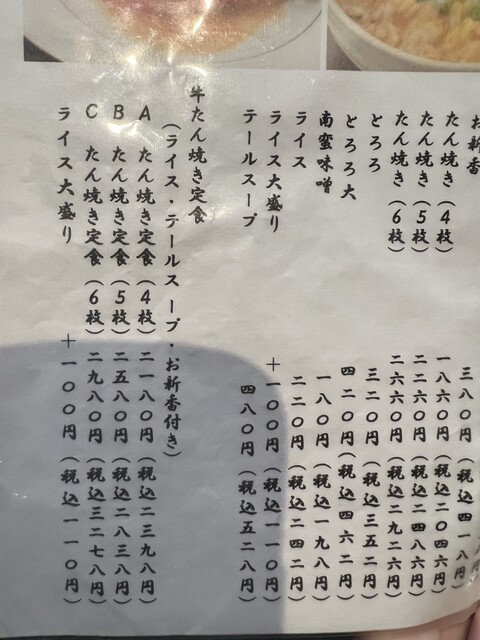 お新香 三八〇円(税込四一八円)
たん焼き(4枚) 一八六〇円(税込二〇四六円)
たん焼き(5枚) 二二六〇円(税込二四八六円)
たん焼き(6枚) 二六六〇円(税込二九二六円)
とろろ 三二〇円(税込三五二円)
とろろ大 四二〇円(税込四六二円)
南蛮味噌 一八〇円(税込一九八円)
ライス 二二〇円(税込二四二円)
ライス大盛り +一〇〇円(税込一一〇円)
テールスープ 四八〇円(税込五二八円)
牛たん焼き定食
(ライス・テールスープ・お新香付き)
A たん焼き定食(4枚) 二一八〇円(税込二三九八円)
B たん焼き定食(5枚) 二五八〇円(税込二八三八円)
C たん焼き定食(6枚) 二九八〇円(税込三二七八円)
ライス大盛り +一〇〇円(税込一一〇円)